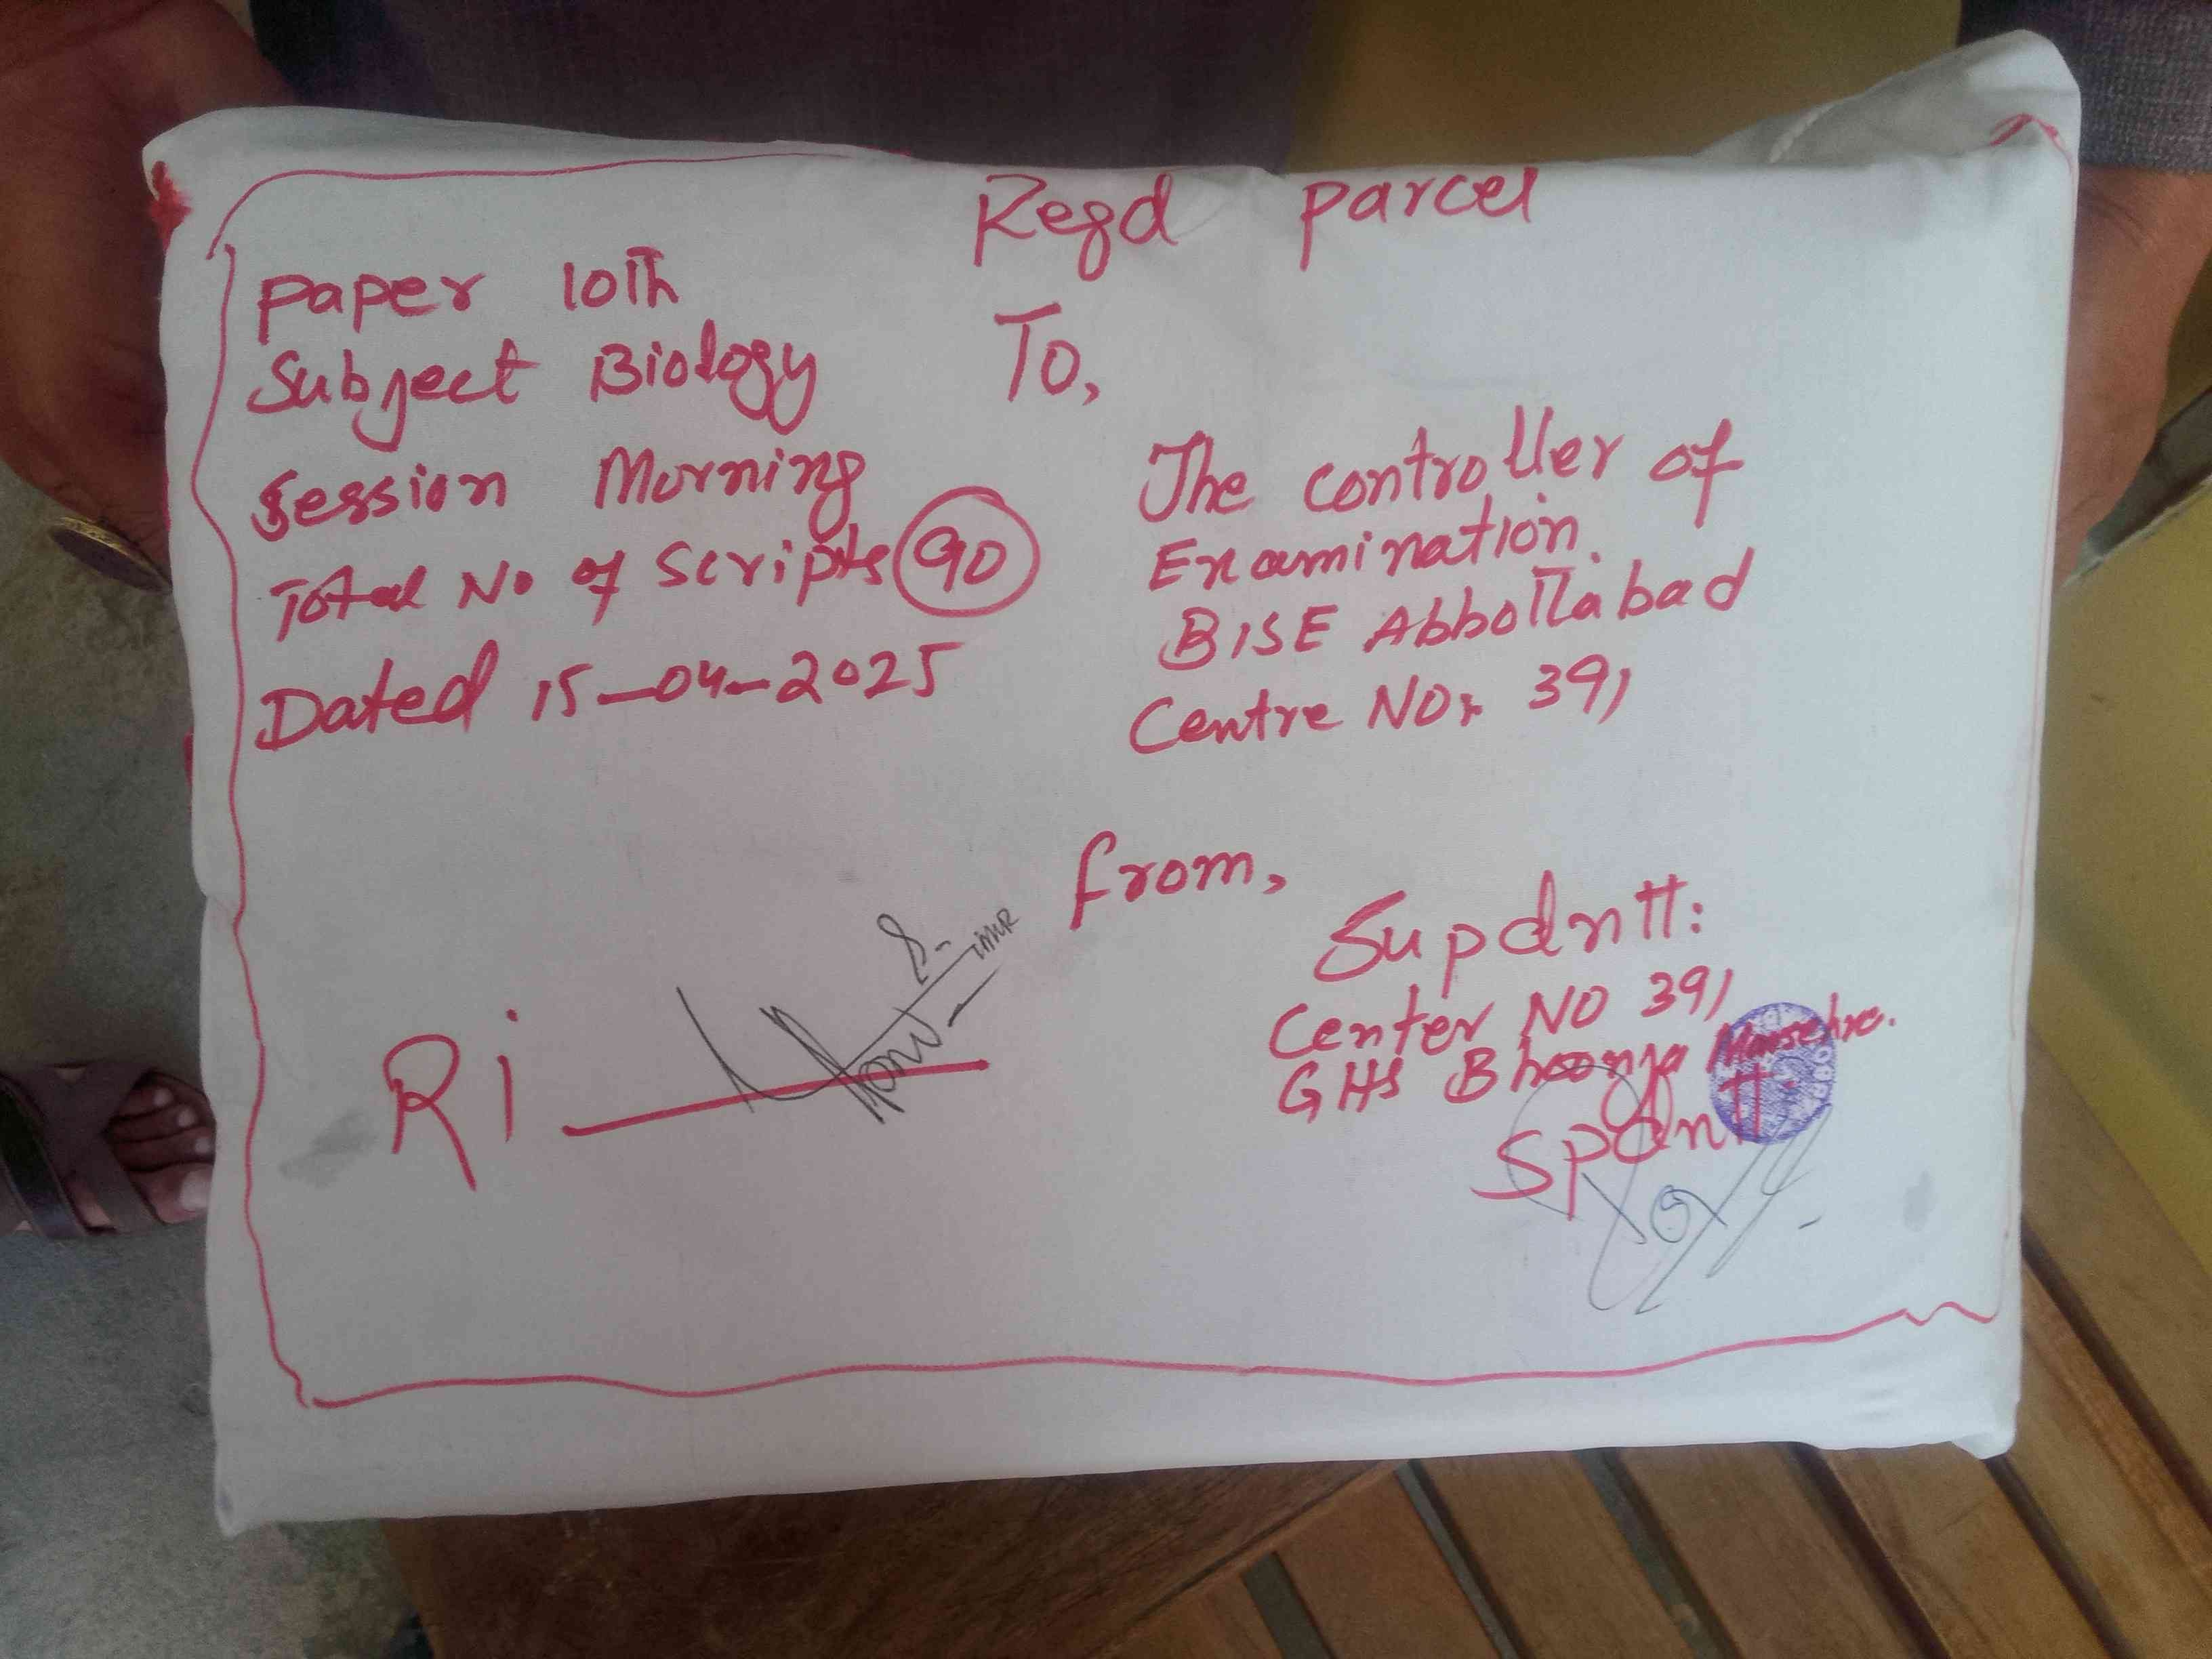 Regd parcel
paper 10th
Subject Biology
Session Morning
Total No of Scripts 90
Dated 15-04-2025
To,
The controller of
Examination.
BISE Abbottabad
Centre NO: 391
from,
Supdntt:
Center NO 391
GHS Bhoonja Mansehra.
Spdntt:
Ri